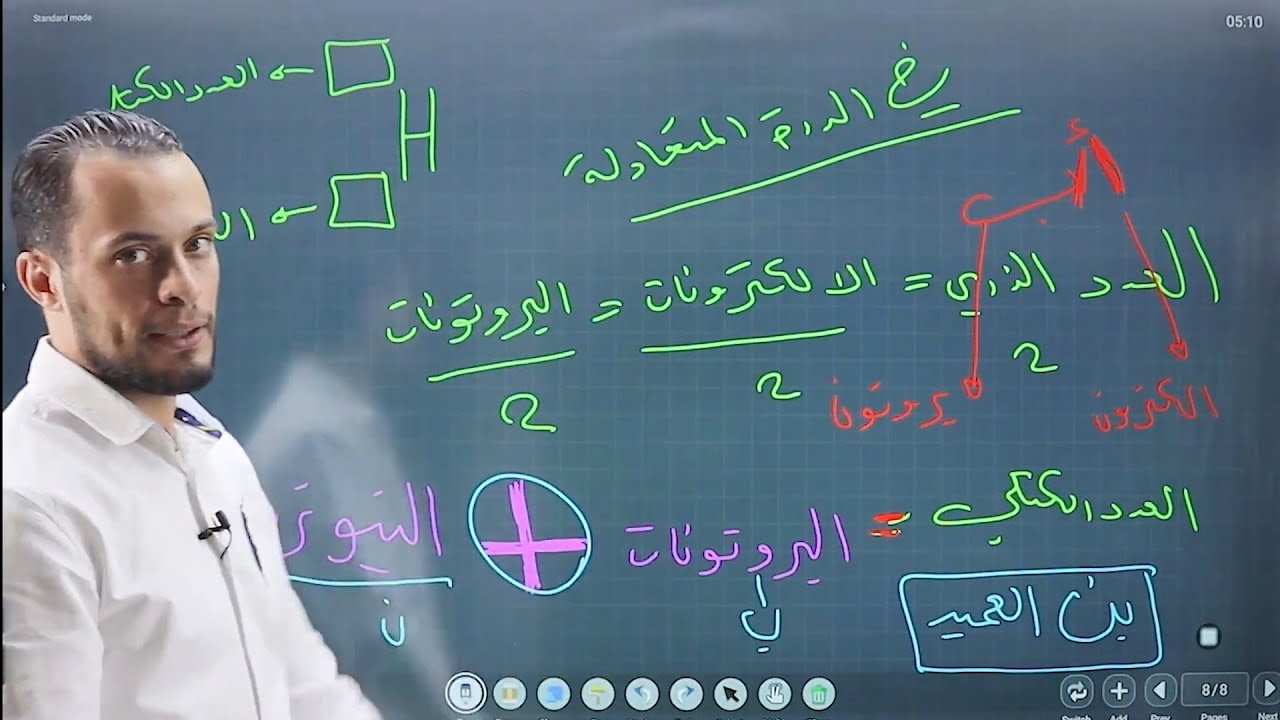 Standard mode
05:10
العدد الكتلي ←
H
في الذرة المتعادلة
أب
العدد الذري = الالكترونات = البروتونات
2 2 2
الكترون
بروتون
العدد الكتلي = البروتونات + النيوتر
ب ن
بن العميد
8/8
Switch Add Prev Pages Next